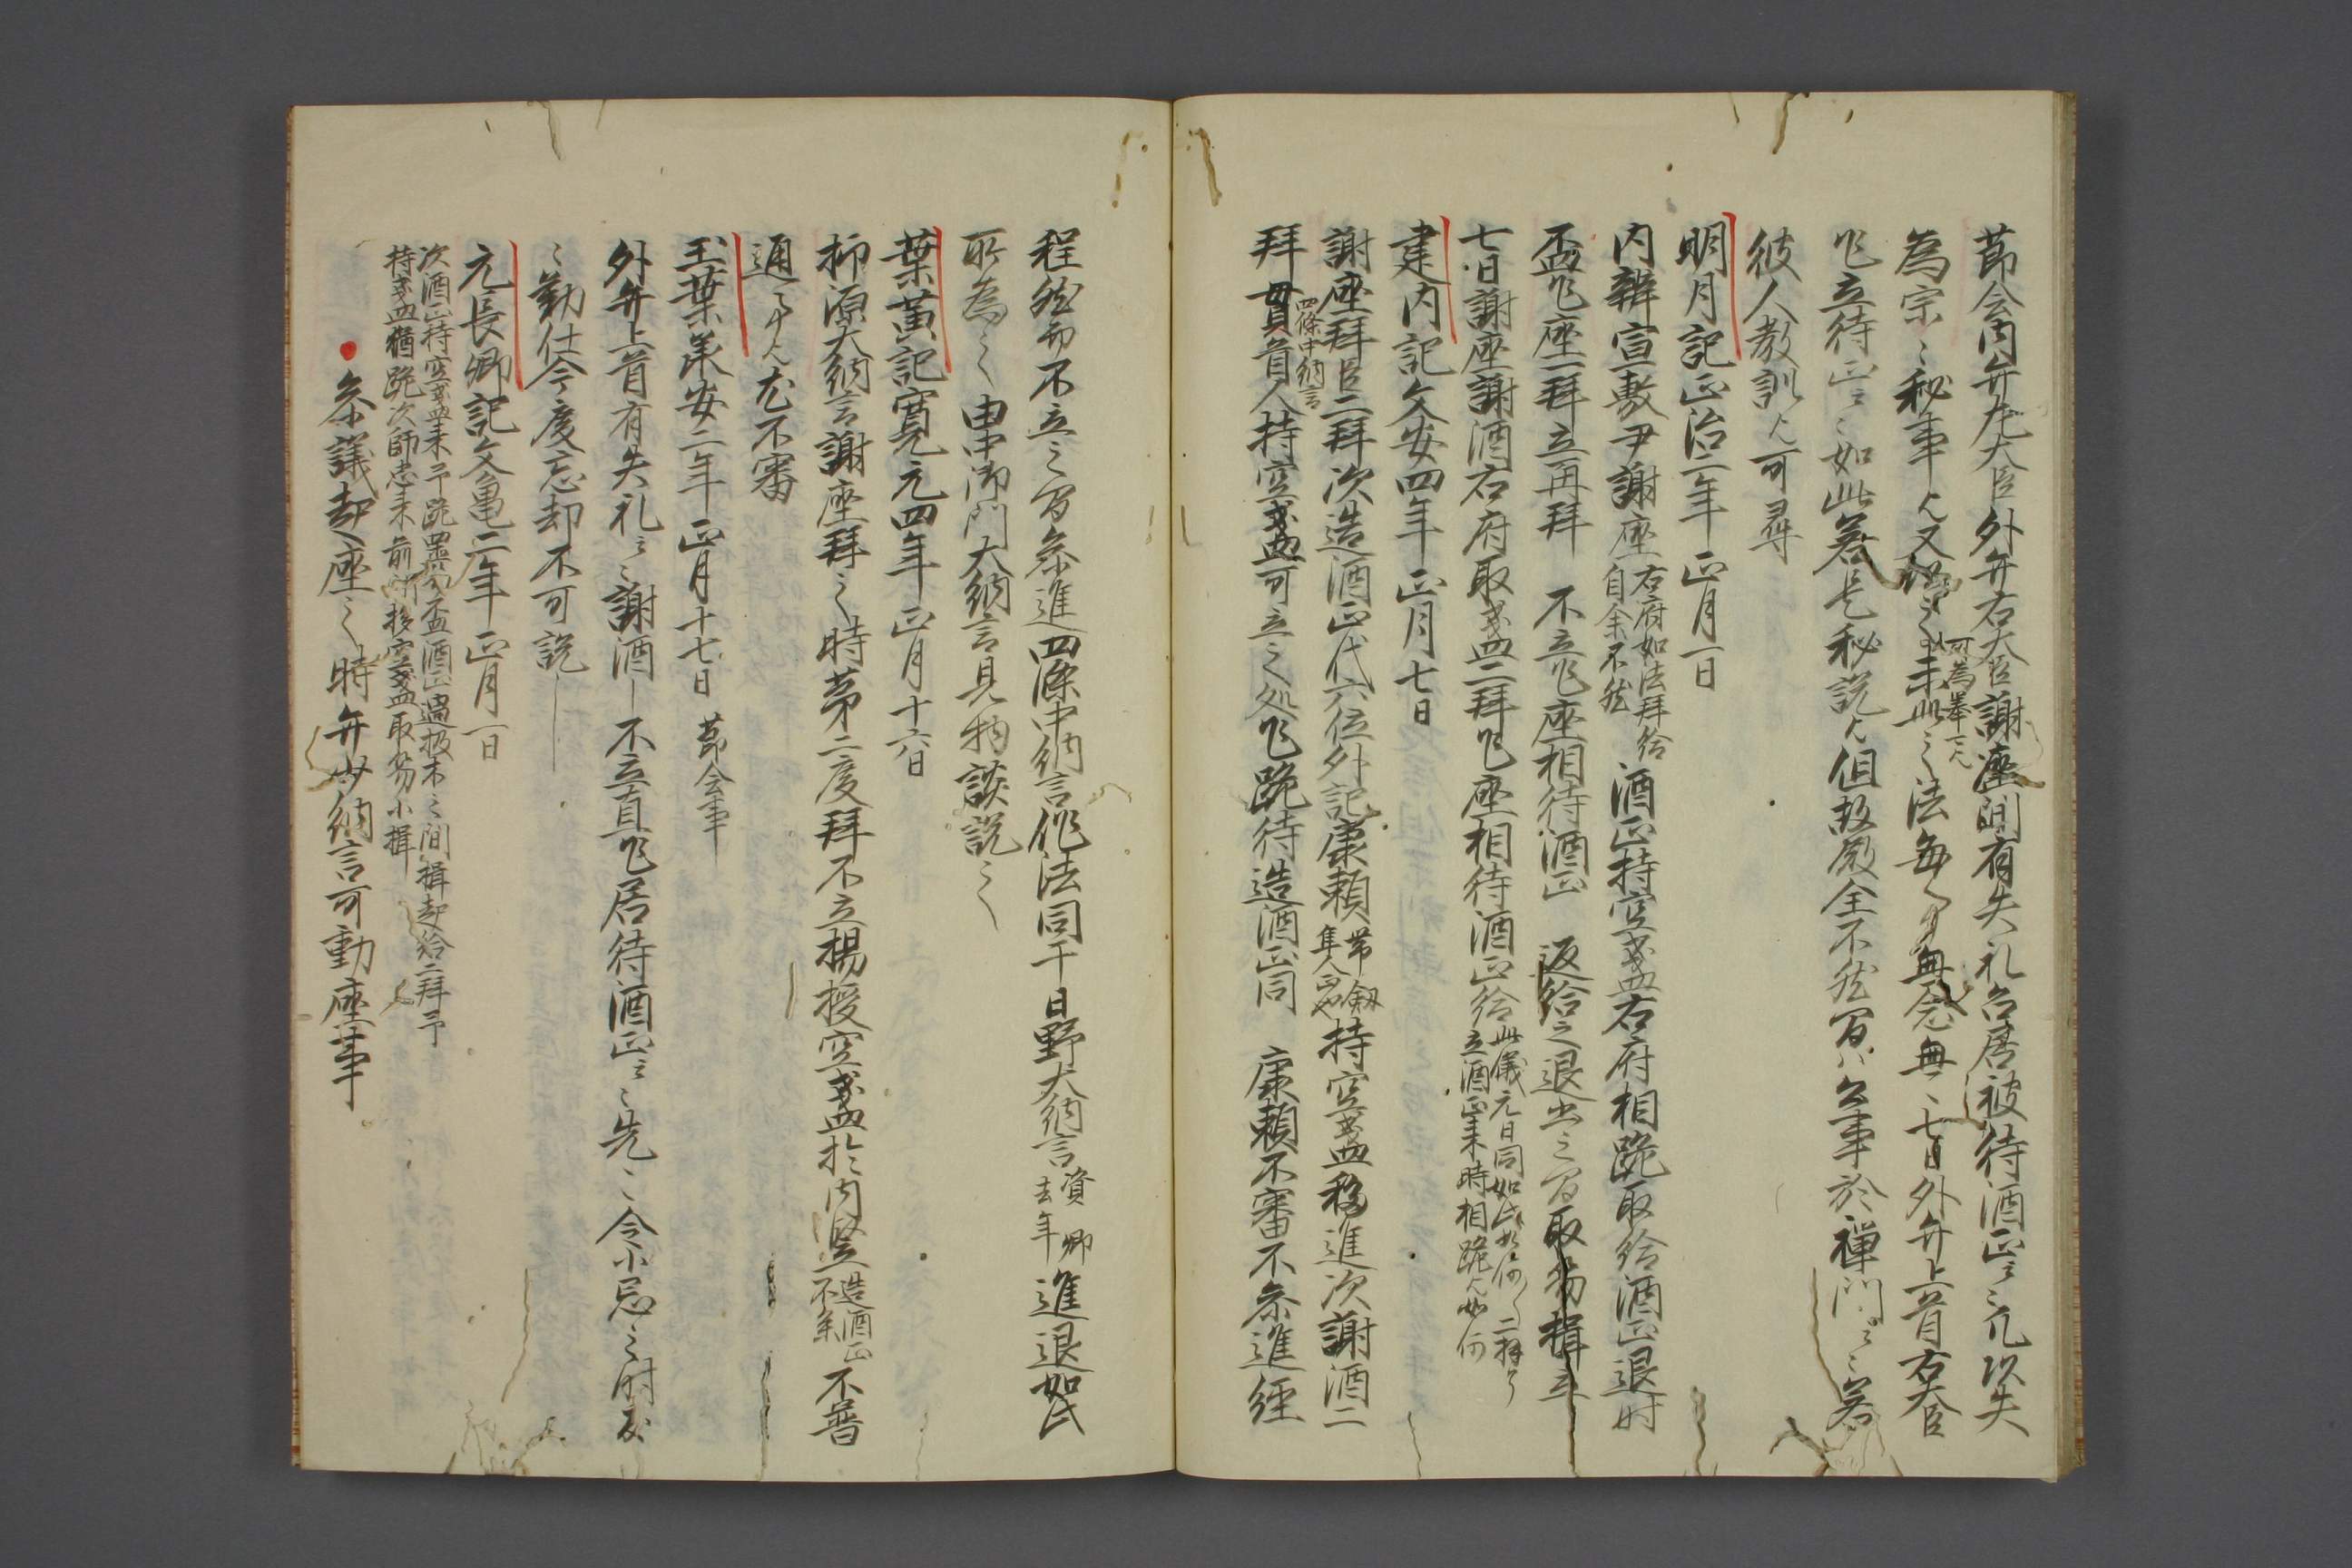 節会内弁左大臣外弁右大臣謝座間有失礼右府被待酒正云々凡以失
為宗云々秘事也又経
可為挙一人
之法毎々無念無々七日外弁上首右大臣
乍立待正云々如此若是秘説也但故殿全不然間公事於禅門云々若
彼人教訓也可尋
明月記正治二年正月一日
内辨宣敷尹謝座
右府如法拝給
自余不然
酒正持空盞右府相跪取給酒正退時
盃乍座一拝立再拝 不立乍座相待酒正 返給之退出之間取笏揖立
七日謝座謝酒右府取盞二拝乍座相待酒正給
此儀元日同如此如何二拝了
立酒正来時相跪也如何
建内記文安四年正月七日
謝座拝
四條中納言
臣二拝次造酒正代六位外記康頼
帯剱
隼人正也
持空盞移進次謝酒二
拝貫首人持空盞可立之処乍跪待造酒正同 康頼不審不参進経
程然而不立之間参進四條中納言作法同干日野大納言
資 卿
去年
進退如此
所為之由中御門大納言見物談説之
葉黄記寛元四年正月十六日
抑源大納言謝座拝之時第二度拝不立揚授空盞於内竪
造酒正
不参
不普
通事也尤不審
玉葉承安二年正月十七日 節会事
外弁上首有失礼云々謝酒一不立直乍居待酒正云々先々令小忌之時度
々勤仕今度忘却不可説
元長卿記文亀二年正月一日
次酒正持空盞来予跪置笏盃酒正過扱木之間揖起給二拝予
持盞猶跪次師忠来前所移空盞取笏小揖
・参議起座之時弁少納言可動座事